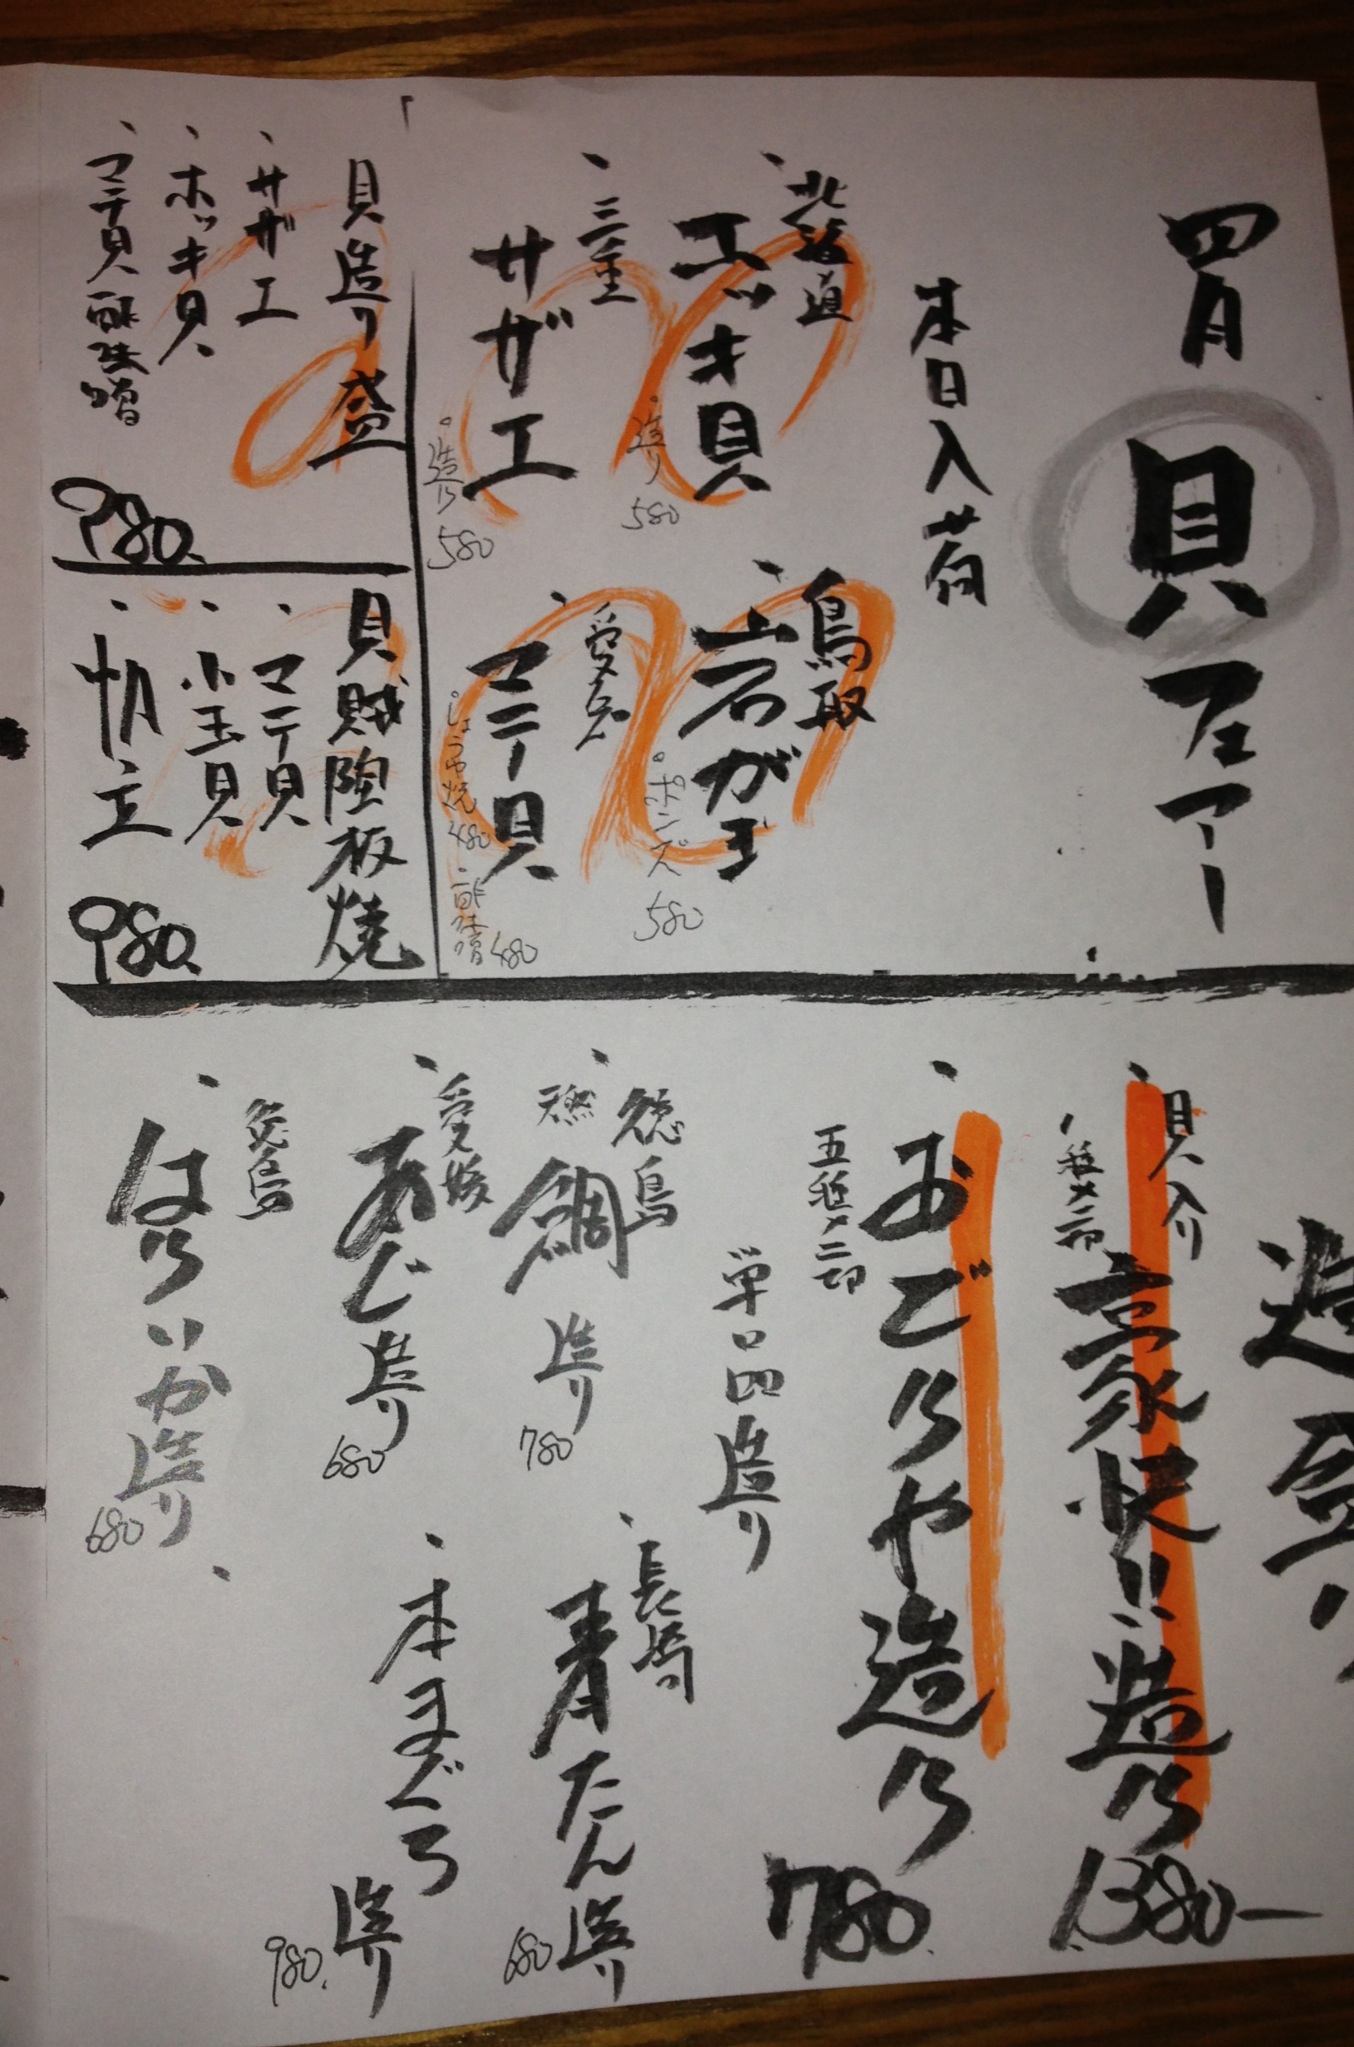 四月 貝 フェアー
本日入荷
北海道
ホッキ貝
造り 580
三重
サザエ
造り 580
鳥取
岩がき
ポンズ 580
愛知
マテ貝
しょうゆ焼 480
酢味噌 480
貝造り盛
サザエ
ホッキ貝
マテ貝酢味噌
980.
貝賊陶板焼
マテ貝
小玉貝
帆立
980.
貝入り
豪快!!造り
1380-
おごりや造り
780.
単品造り
徳島
天然
鯛
造り
780
長崎
青たん造り
680
愛媛
あじ造り
680
本まぐろ
造り
980.
徳島
はりいか造り
680